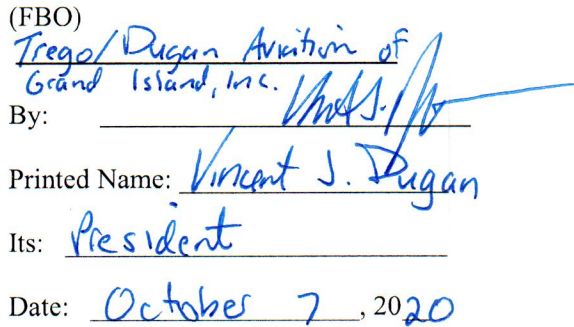 (FBO)
Trego/Dugan Aviation of
Grand Island, Inc.
By:
Printed Name: Vincent J. Dugan
Its: President
Date: October 7, 2020